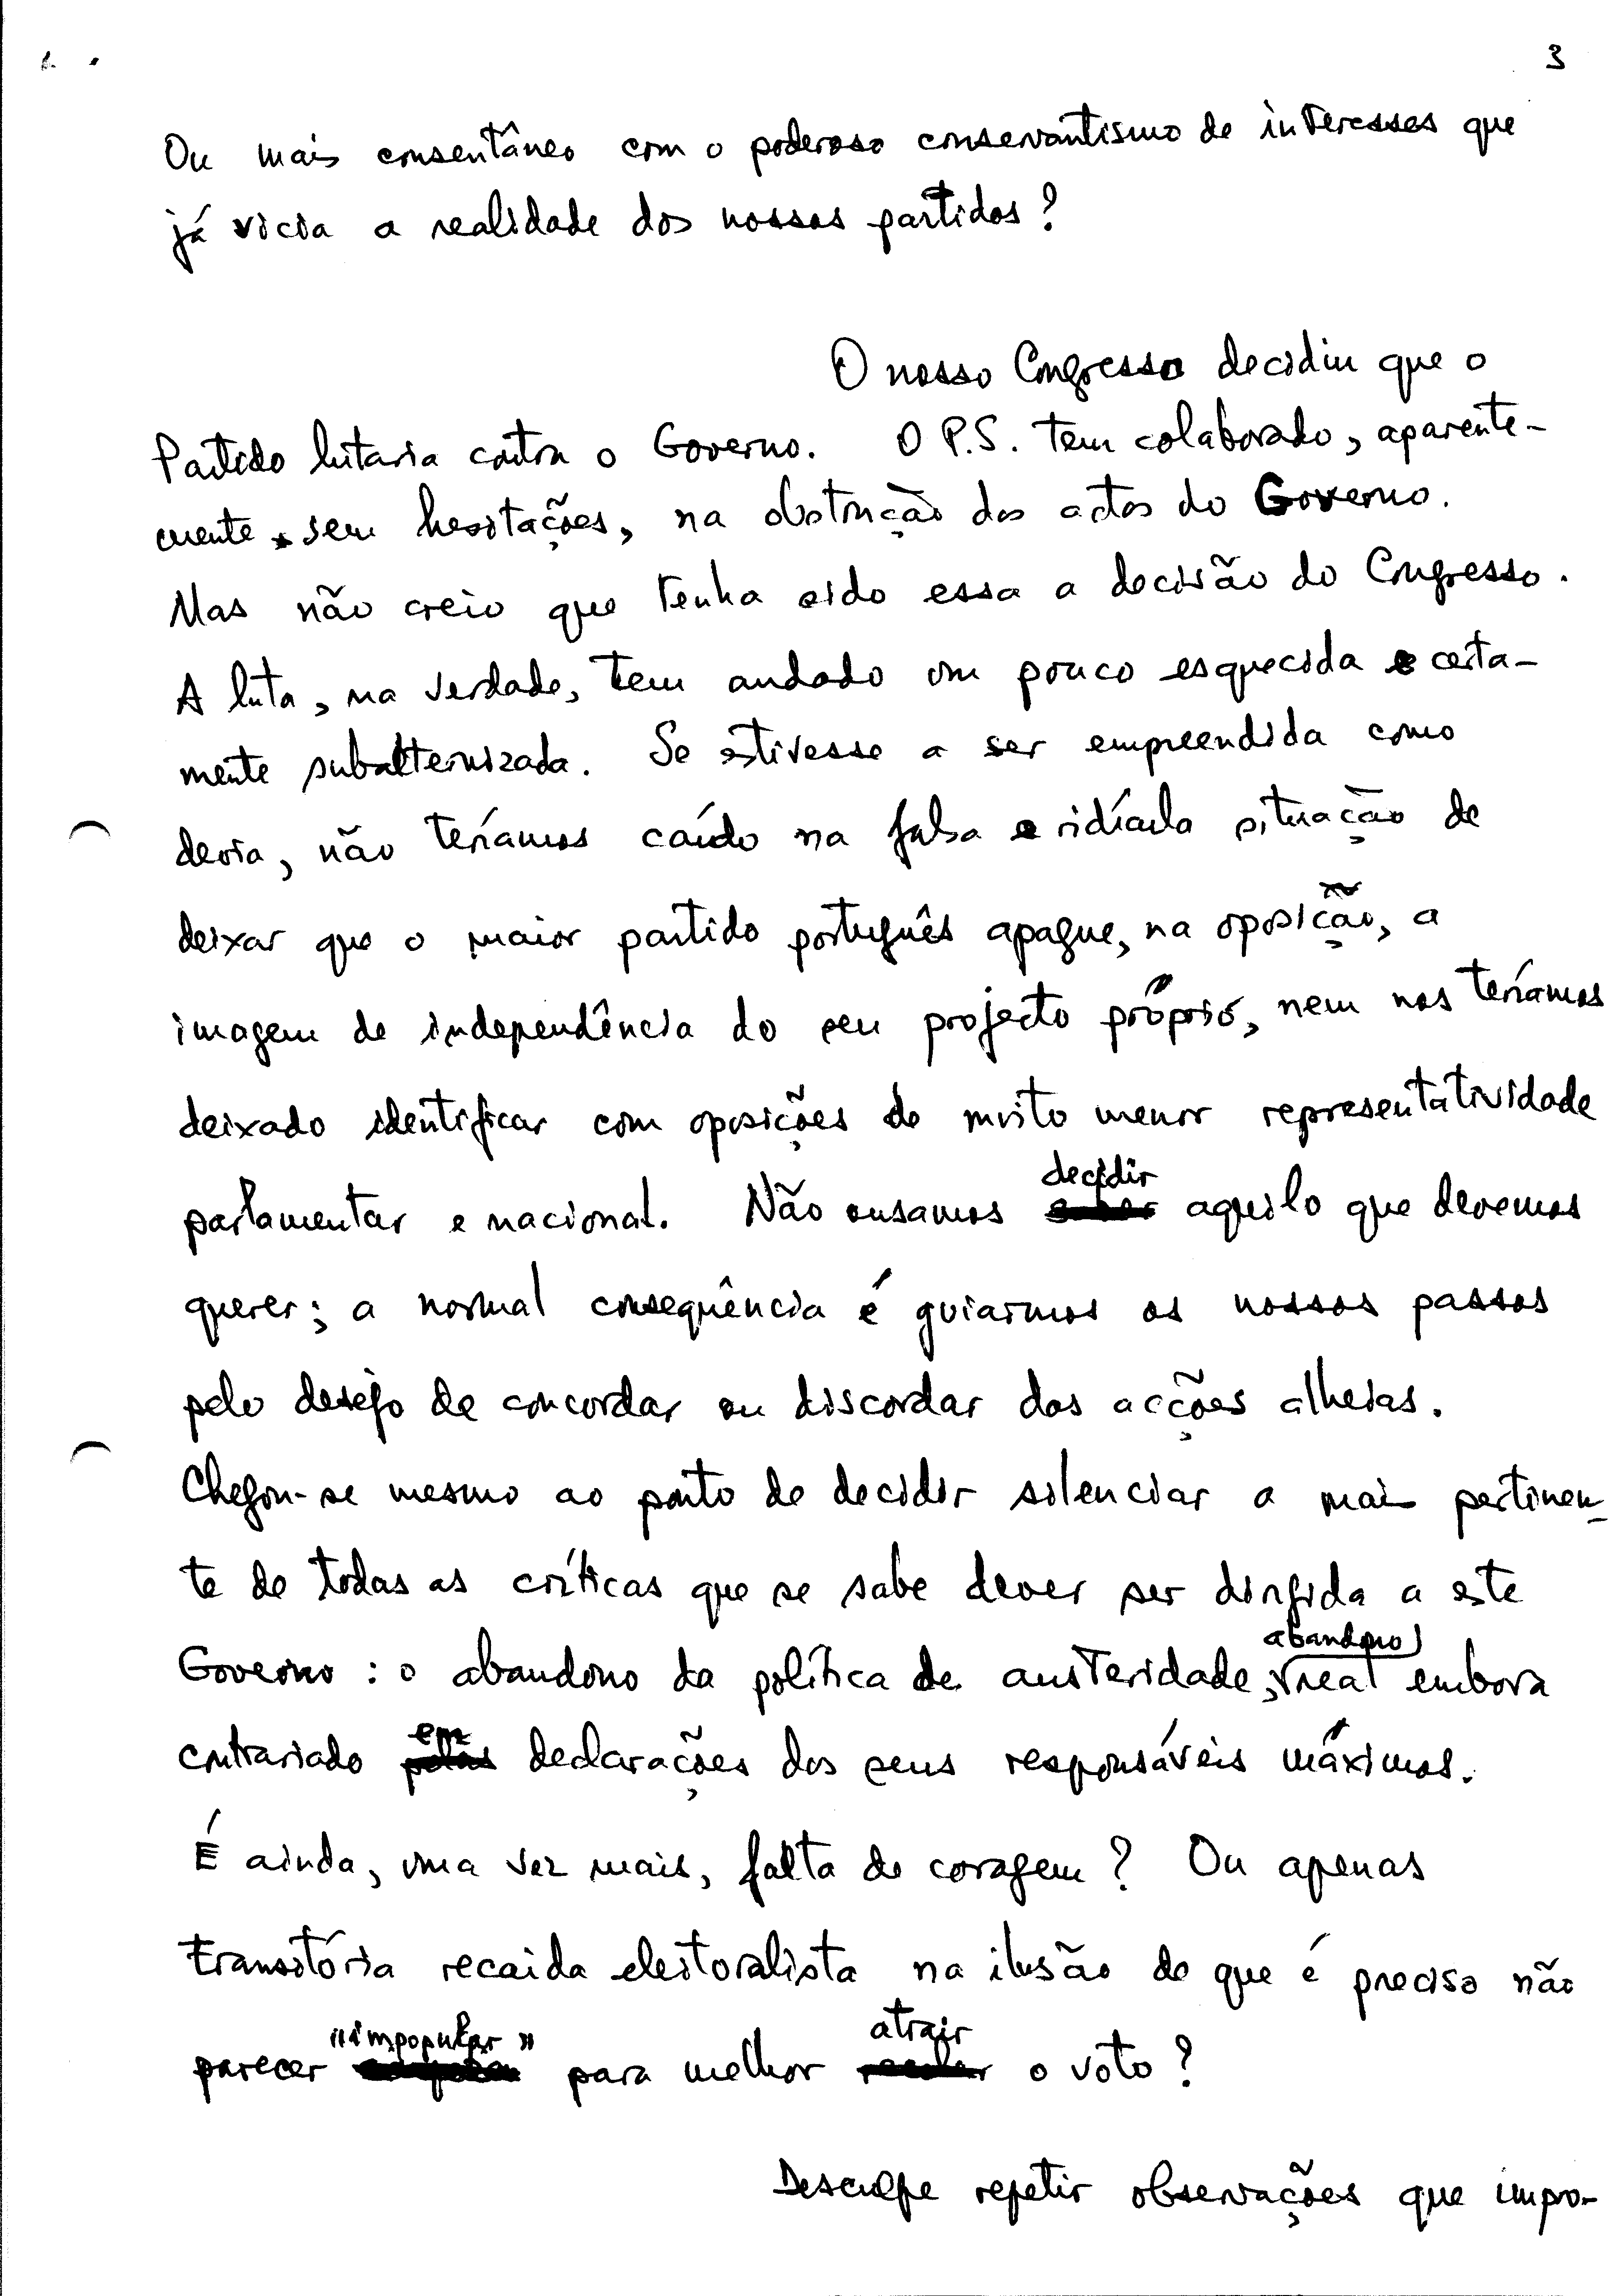 3
Ou mais consentâneo com o poderoso conservantismo de interesses que
já vicia a realidade dos nossos partidos?
O nosso Congresso decidiu que o
Partido lutaria contra o Governo. O P.S. tem colaborado, aparente-
mente sem hesitações, na obstrução dos actos do Governo.
Mas não creio que tenha sido essa a decisão do Congresso.
A luta, na verdade, tem andado um pouco esquecida e certa-
mente subalternizada. Se estivesse a ser empreendida como
devia, não teríamos caído na falsa e ridícula situação de
deixar que o maior partido português apague, na oposição, a
imagem de independência do seu projecto próprio, nem nos teríamos
deixado identificar com oposições de muito menor representatividade
decidir
parlamentar e nacional. Não ousamos aquilo que devemos
querer; a normal consequência é guiarmos os nossos passos
pelo desejo de concordar ou discordar das acções alheias.
Chegou-se mesmo ao ponto de decidir silenciar a mais pertinen-
te de todas as críticas que se sabe dever ser dirigida a este
abandono
Governo: o abandono da política de austeridade, real embora
em
contrariado pelas declarações dos seus responsáveis máximos.
É ainda, uma vez mais, falta de coragem? Ou apenas
transitória recaida eleitoralista na ilusão de que é preciso não
"impopular" atrair
parecer para melhor o voto?
Desculpe repetir observações que impro-